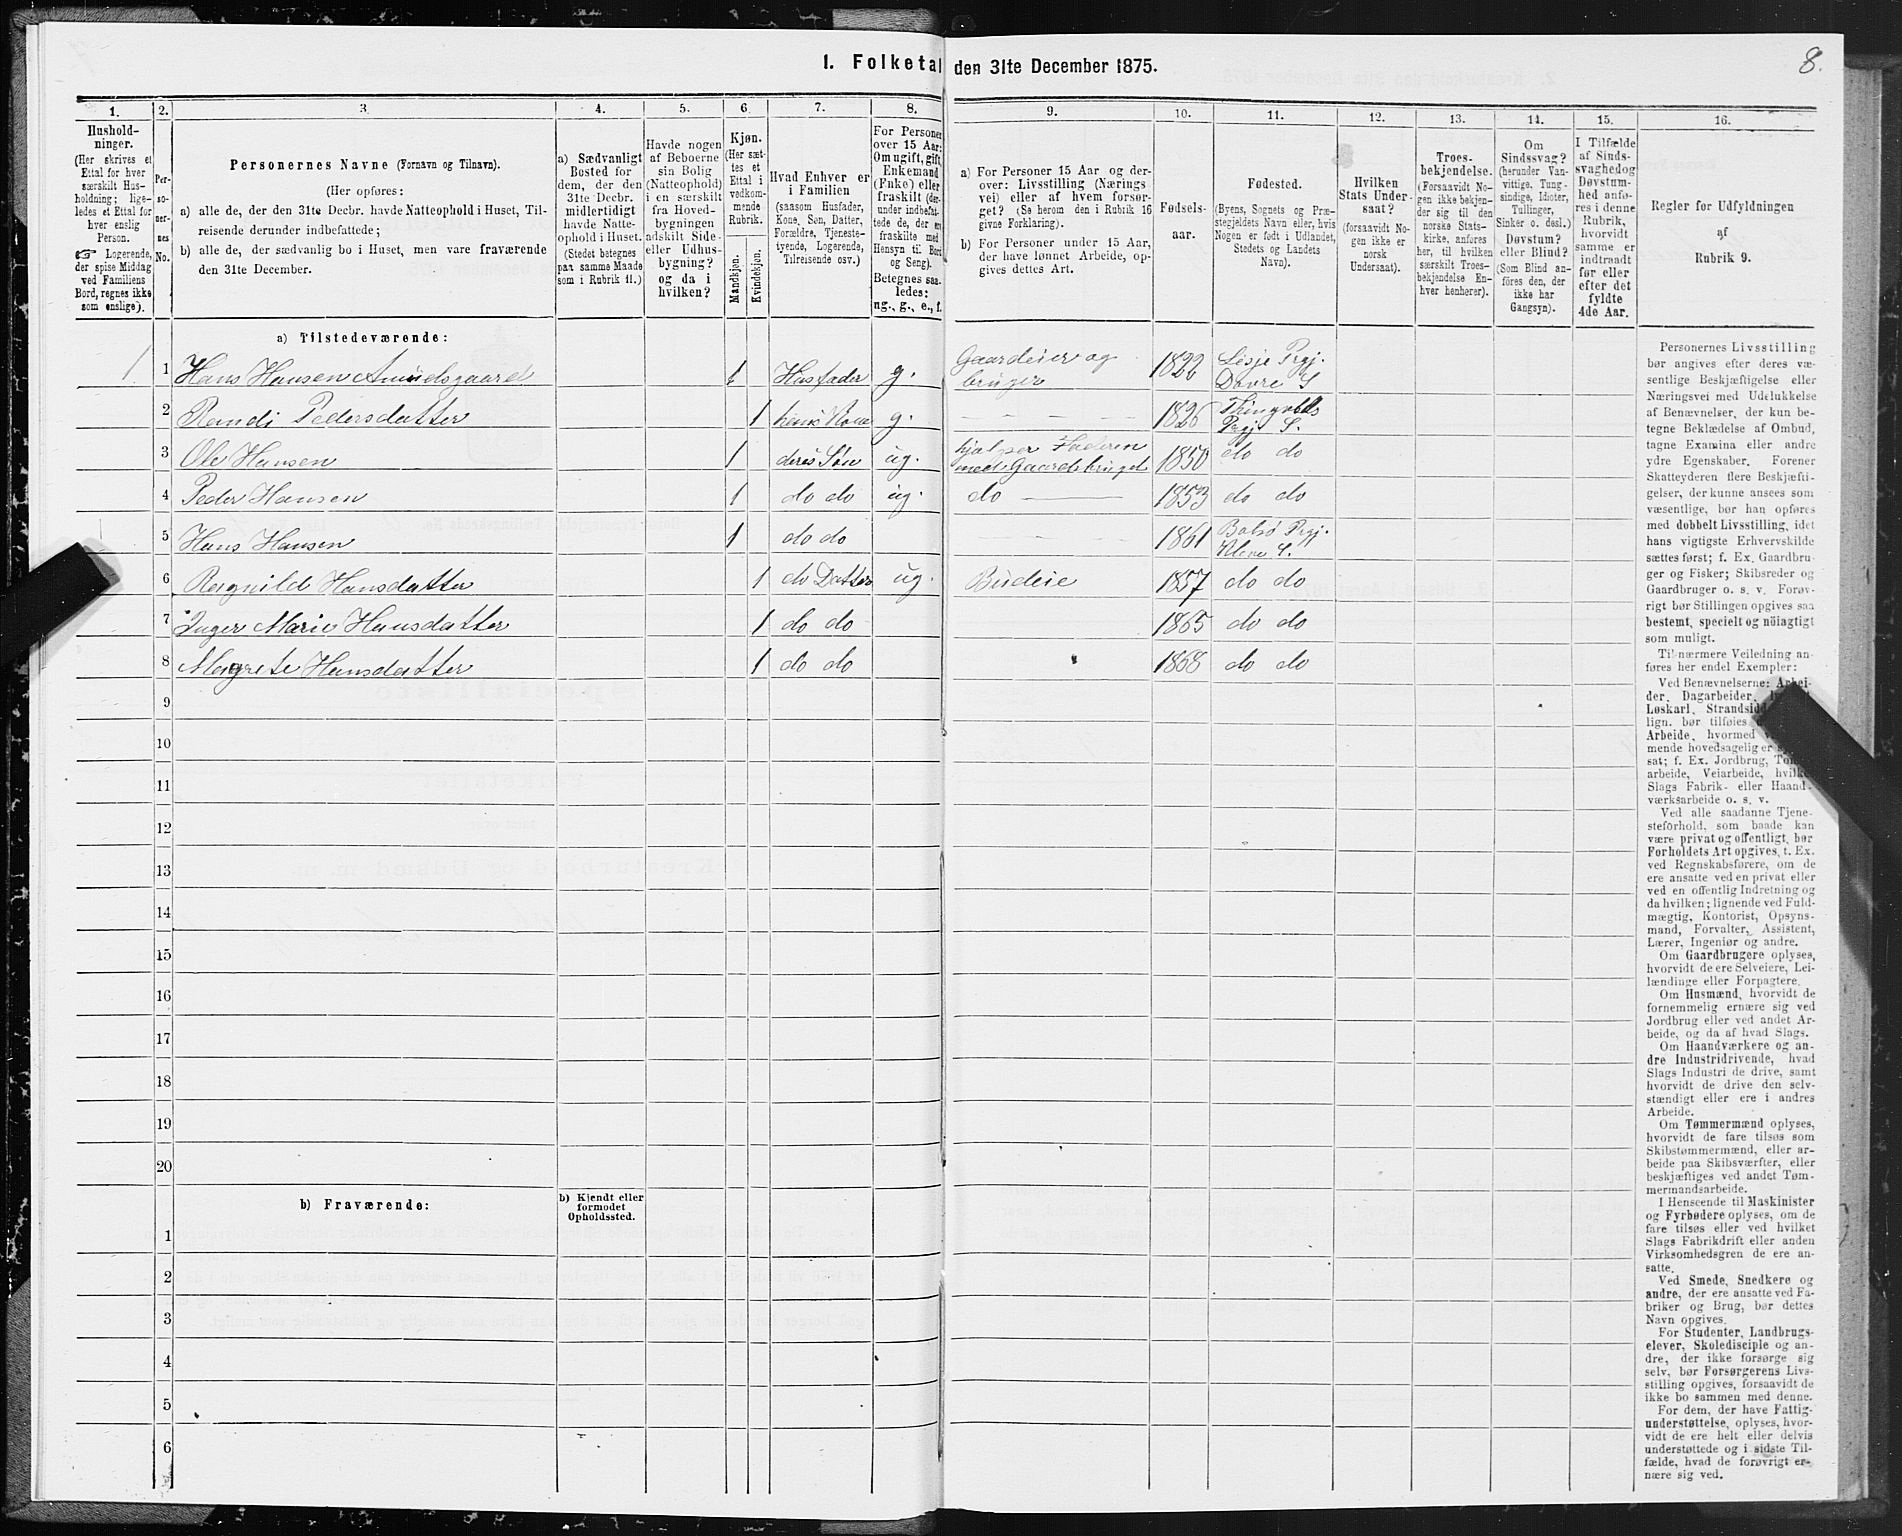 8.
1. Folketal den 31te December 1875.
1.
2.
3.
4.
5.
6.
7.
8.
9.
10.
11.
12.
13.
14.
15.
16.
Hushold-
ninger.
(Her skrives et
Ettal for hver
særskilt Hus-
holdning; lige-
ledes et Ettal for
hver enslig
Person.
☞ Logerende,
der spise Middag
ved Familiens
Bord, regnes ikke
som enslige).
Per-
so-
ner-
nes
No.
Personernes Navne (Fornavn og Tilnavn).
(Her opføres:
a) alle de, der den 31te Decbr. havde Natteophold i Huset, Til-
reisende derunder indbefattede;
b) alle de, der sædvanlig bo i Huset, men vare fraværende
den 31te December.
a) Sædvanligt
Bosted for
dem, der den
31te Decbr.
midlertidigt
havde Natte-
ophold i Huset.
(Stedet betegnes
paa samme Maade
som i Rubrik 11.)
Havde nogen
af Beboerne
sin Bolig
(Natteophold)
i en særskilt
fra Hoved-
bygningen
adskilt Side-
eller Udhus-
bygning?
og da i
hvilken?
Kjøn.
(Her sæt-
tes et
Ettal i
vedkom-
mende
Rubrik.
Mandkjøn.
Kvindekjøn.
Hvad Enhver er
i Familien
(saasom Husfader,
Kone, Søn, Datter,
Forældre, Tjeneste-
tyende, Logerende,
Tilreisende osv.)
For Personer
over 15 Aar:
Om ugift, gift,
Enkemand
(Enke) eller
fraskilt (der-
under indbefat-
tede de, der er
fraskilte med
Hensyn til Bord
og Seng).
Betegnes saa-
ledes:
ug., g., e., f.
a) For Personer 15 Aar og der-
over: Livsstilling (Nærings
vei) eller af hvem forsør-
get? (Se herom den i Rubrik 16
givne Forklaring).
b) For Personer under 15 Aar,
der have lønnet Arbeide, op-
gives dettes Art.
Fødsels-
aar.
Fødested.
(Byens, Sognets og Præ-
stegjeldets Navn eller, hvis
Nogen er født i Udlandet,
Stedets og Landets
Navn).
Hvilken
Stats Under-
saat?
(forsaavidt No-
gen ikke er
norsk
Undersaat).
Troes-
bekjendelse.
(Forsaavidt No-
gen ikke bekjen-
der sig til den
norske Stats-
kirke, anføres
her, til hvilken
særskilt Troes-
bekjendelse En-
hver henhører).
Om
Sindssvag?
(herunder Van-
vittige, Tung-
sindige, Idioter,
Tullinger,
Sinker o. desl.)
Døvstum?
eller Blind?
(Som Blind an-
føres den, der
ikke har
Gangsyn).
I Tilfælde
af Sinds-
svaghed og
Døvstum-
hed anfø-
res i denne
Rubrik,
hvorvidt
samme er
indtraadt
før eller
efter det
fyldte
4de Aar.
Regler for Udfyldningen
af
Rubrik 9.
a) Tilstedeværende:
1 1 Hans Hansen Amundsgaard 1 Husfader g. Gaardeier og bruger 1822 Lesje Prgj. Dovre S
2 Randi Pedersdatter 1 hans Kone g. 1826 Thingvolds Prgj S.
3 Ole Hansen 1 deres Søn ug. hjælper Faderen med Gaardsbruget 1850 do do
4 Peder Hansen 1 do do ug. do 1853 do do
1 5 Hans Hansen 1 do do 1861 Bolsø Prgj. Kleve S.
6 Ragnild Hansdatter 1 do Datter ug. Budeie 1857 do do
7 Inger Marie Hansdatter 1 do do 1865 do do
8 Magrete Hansdatter 1 do do 1868 do do
9
10
11
12
13
14
15
16
17
18
19
20
b) Fraværende:
b) Kjendt eller
formodet
Opholdssted.
1
2
3
4
5
6
Personernes Livsstilling
bør angives efter deres væ-
sentlige Beskjæftigelse eller
Næringsvei med Udelukkelse
af Benævnelser, der kun be-
tegne Beklædelse af Ombud,
tagne Examina eller andre
ydre Egenskaber. Forener
Skatteyderen flere Beskjæfti-
gelser, der kunne ansees som
væsentlige, bør han opføres
med dobbelt Livsstilling, idet
hans vigtigste Erhvervskilde
sættes først; f. Ex. Gaardbru-
ger og Fisker; Skibsreder og
Gaardbruger o. s. v. Forøv-
rigt bør Stillingen opgives saa
bestemt, specielt og nöiagtigt
som muligt.
Til nærmere Veiledning an-
føres her endel Exempler:
Ved Benævnelserne: Arbei-
der, Dagarbeider,
Løskarl, Strandsid
lign. bør tilføies
Arbeide, hvormed
mende hovedsagelig er
sat; f. Ex. Jordbrug,
arbeide, Veiarbeide, hvilke
Slags Fabrik- eller Haand-
værksarbeide o. s. v.
Ved alle saadanne Tjene-
steforhold, som baade kan
være privat og offentligt, bør
Forholdets Art opgives, t. Ex.
ved Regnskabsførere, om de
ere ansatte ved en privat eller
ved en offentlig Indretning og
da hvilken; lignende ved Fuld-
mægtig, Kontorist, Opsyns-
mand, Forvalter, Assistent,
Lærer, Ingeniør og andre.
Om Gaardbrugere oplyses,
hvorvidt de ere Selveiere, Lei-
lændinge eller Forpagtere.
Om Husmænd, hvorvidt de
fornemmelig ernære sig ved
Jordbrug eller ved andet Ar-
beide, og da af hvad Slags.
Om Haandværkere og an-
dre Industridrivende, hvad
Slags Industri de drive, samt
hvorvidt de drive den selv-
stændigt eller ere i andres
Arbeide.
Om Tømmermænd oplyses,
hvorvidt de fare tilsøs som
Skibstømmermænd, eller ar-
beide paa Skibsværfter, eller
beskjæftiges ved andet Tøm-
mermandsarbeide.
I Henseende til Maskinister
og Fyrbødere oplyses, om de
fare tilsøs eller ved hvilket
Slags Fabrikdrift eller anden
Virksomhedsgren de ere an-
satte.
Ved Smede, Snedkere og
andre, der ere ansatte ved Fa-
briker og Brug, bør dettes
Navn opgives.
For Studenter, Landbrugs-
elever, Skoledisciple og an-
dre, der ikke forsørge sig
selv, bør Forsørgerens Livs-
stilling opgives, forsaavidt de
ikke bo sammen med denne.
For dem, der have Fattig-
understøttelse, oplyses, hvor-
vidt de ere helt eller delvis
understøttede og i sidste Til-
fælde, hvad de forøvrigt er-
nære sig ved.